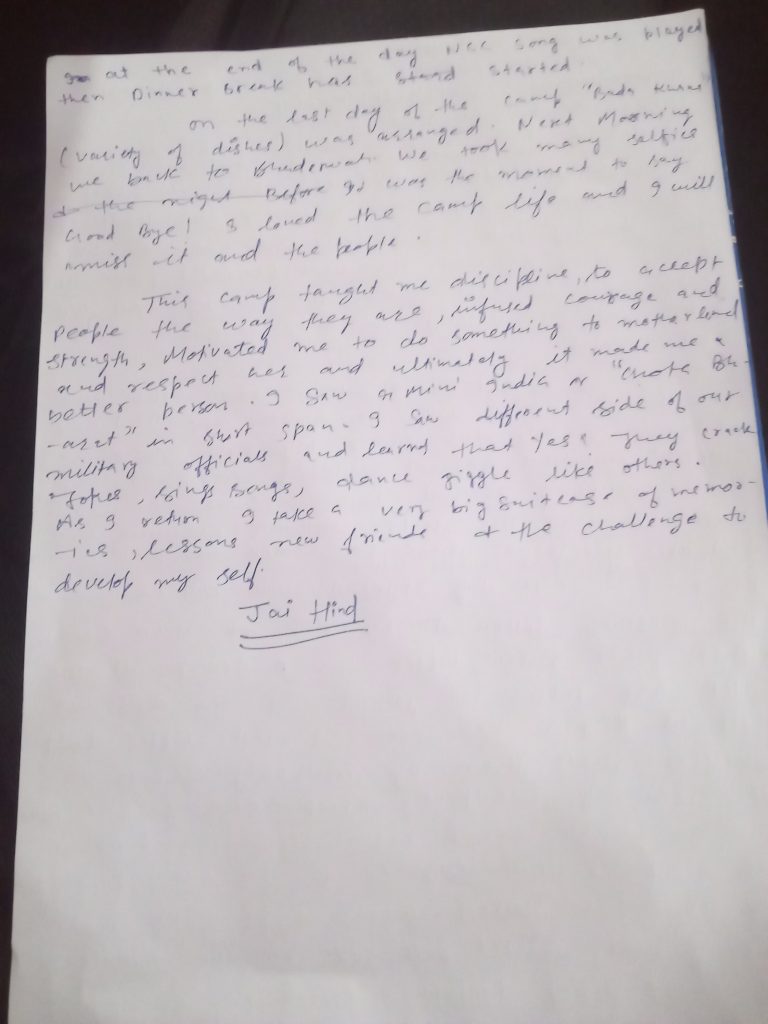 at the end of the day NCC song was played
then Dinner Break has started.
on the last day of the camp "Bada Khana"
(variety of dishes) was arranged. Next Morning
we back to Bhaderwah. We took many selfies
the night Before It was the moment to say
Good Bye! I loved the camp life and I will
miss it and the people.
This camp taught me discipline, to accept
people the way they are, infused courage and
strength, Motivated me to do something to motherland
and respect her and ultimately it made me a
better person. I saw a mini India or "Chota Bh-
-arat" in short span. I saw different side of our
military officials and learnt that Yes! They crack
Jokes, sings songs, dance giggle like others.
As I return I take a very big Suitcase of memor-
-ies, lessons new friends & the challenge to
develop my self.
Jai Hind